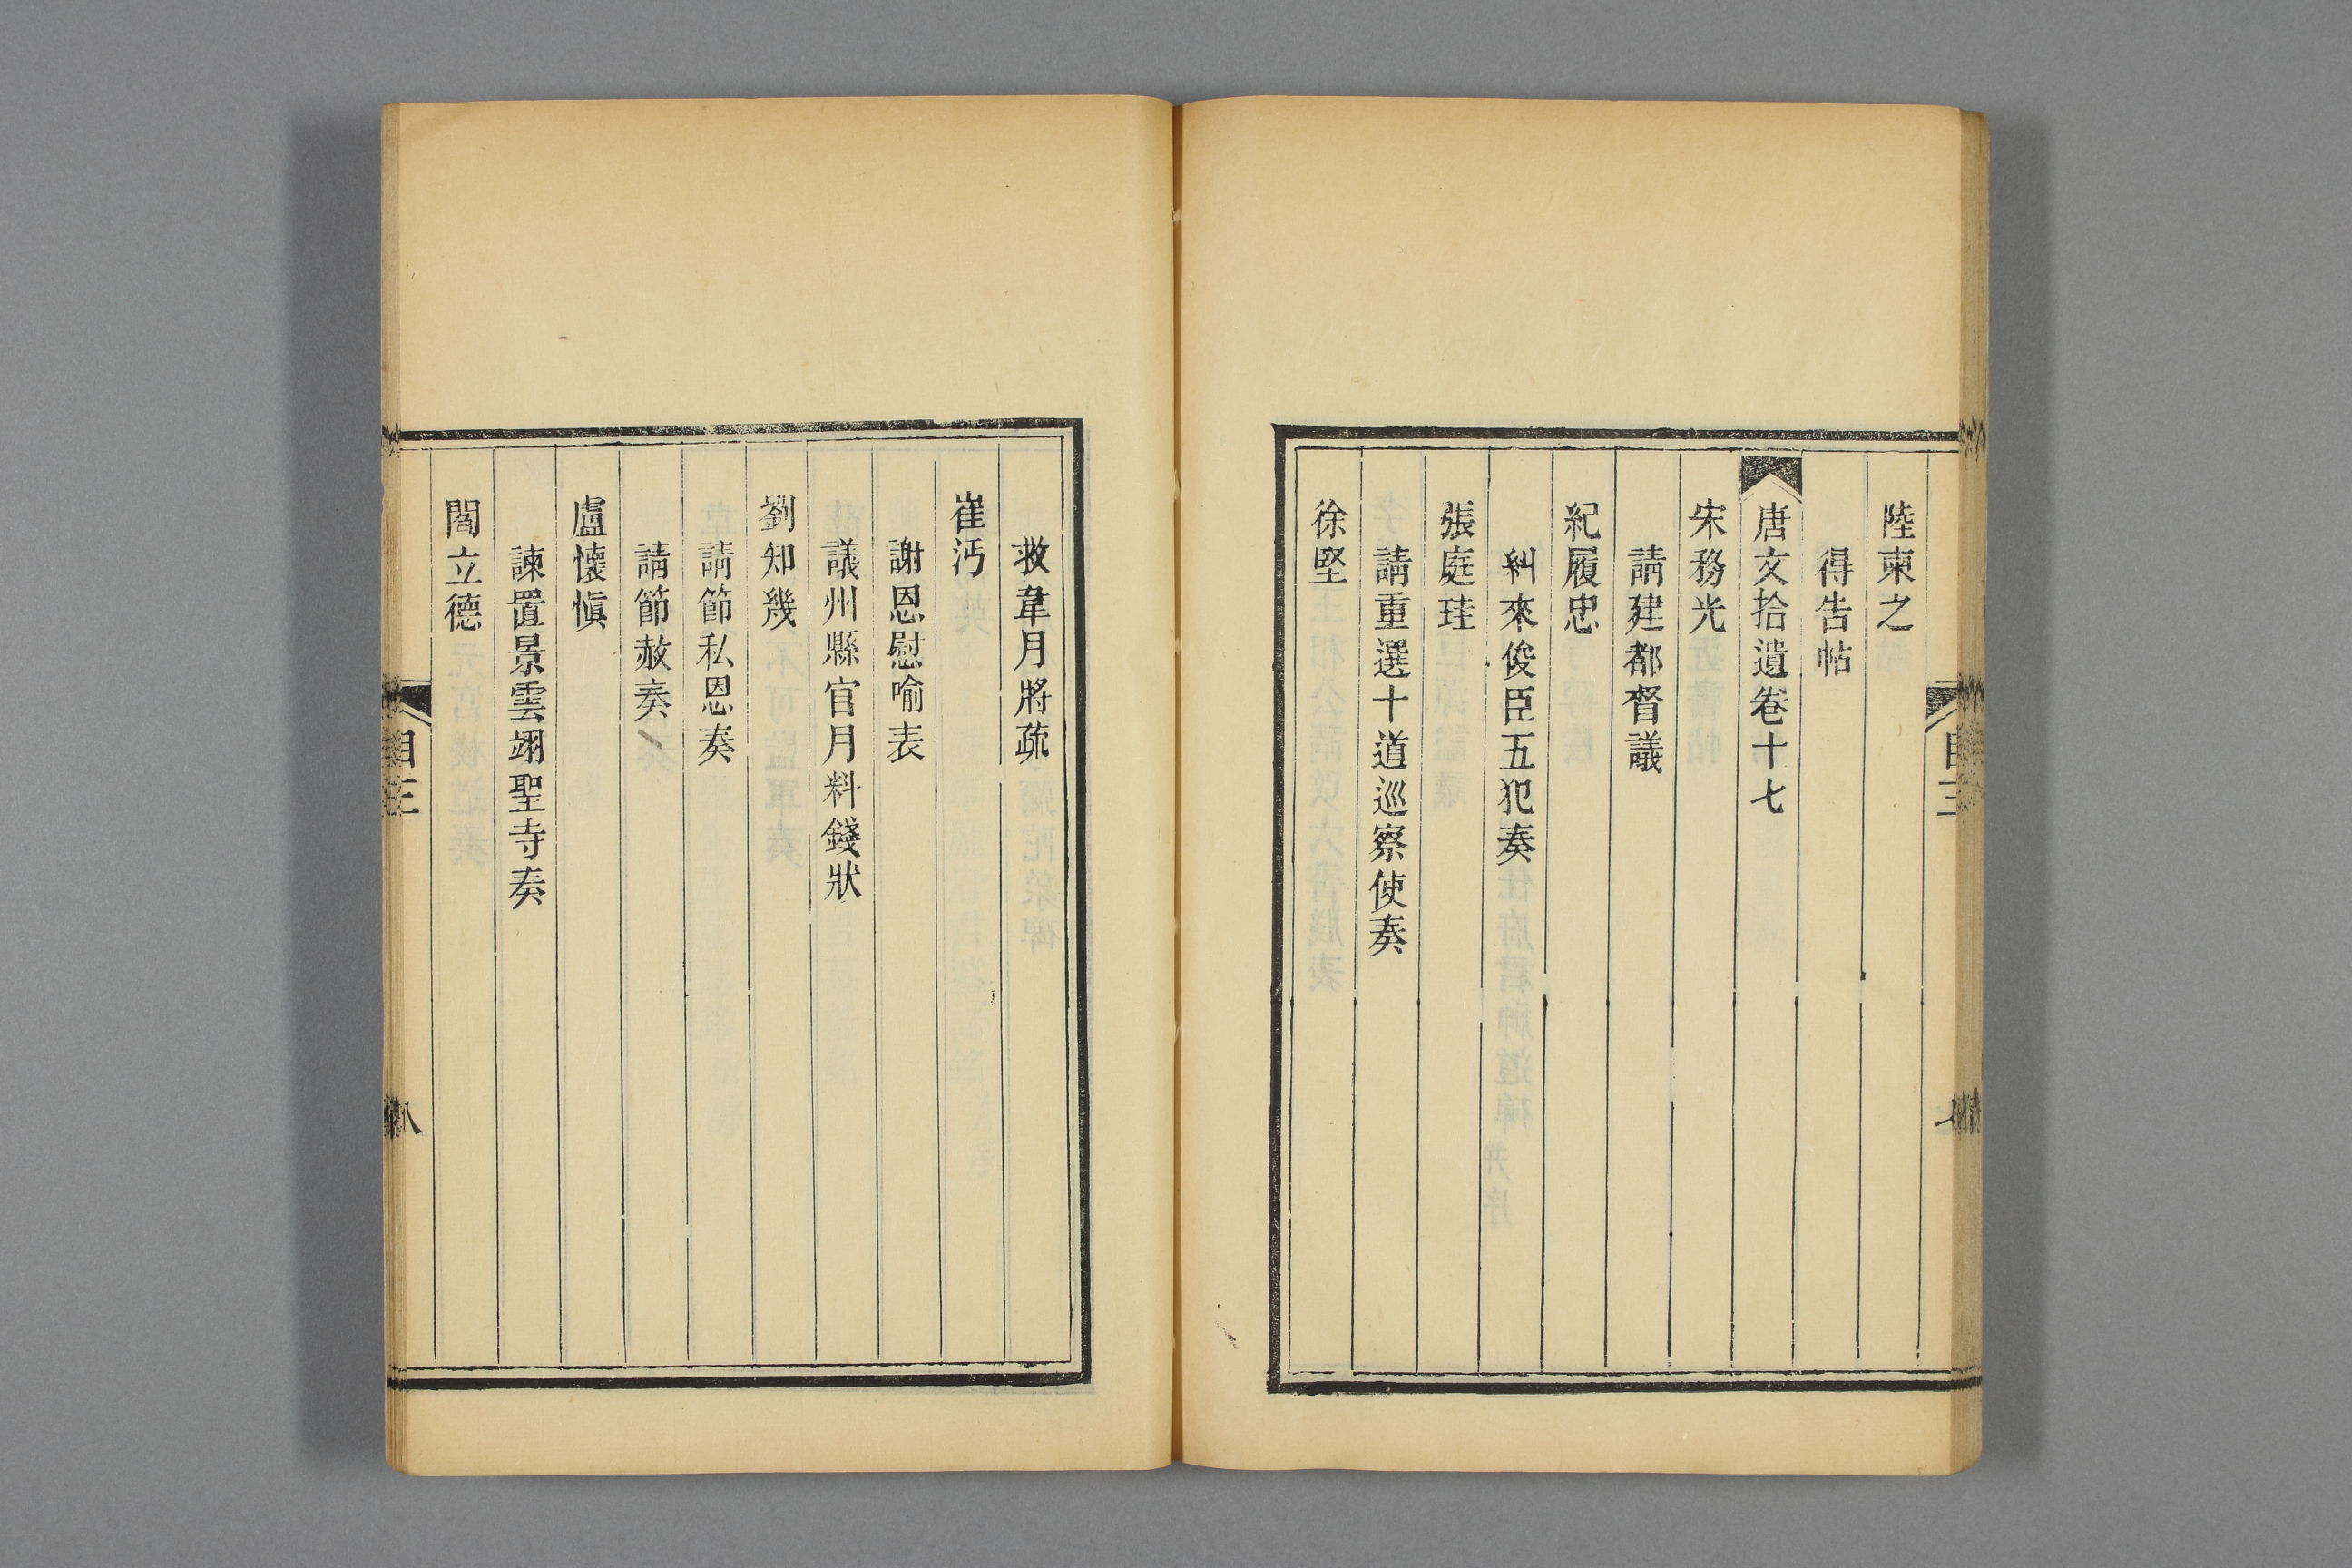 陸柬之
得告帖
唐文拾遺卷十七
宋務光
請建都督議
紀履忠
糾來俊臣五犯奏
張庭珪
請重選十道巡察使奏
徐堅
救韋月將疏
崔沔
謝恩慰喻表
議州縣官月料錢狀
劉知幾
請節私恩奏
請節赦奏
盧懷愼
諫置景雲翊聖寺奏
閻立德
目三
八